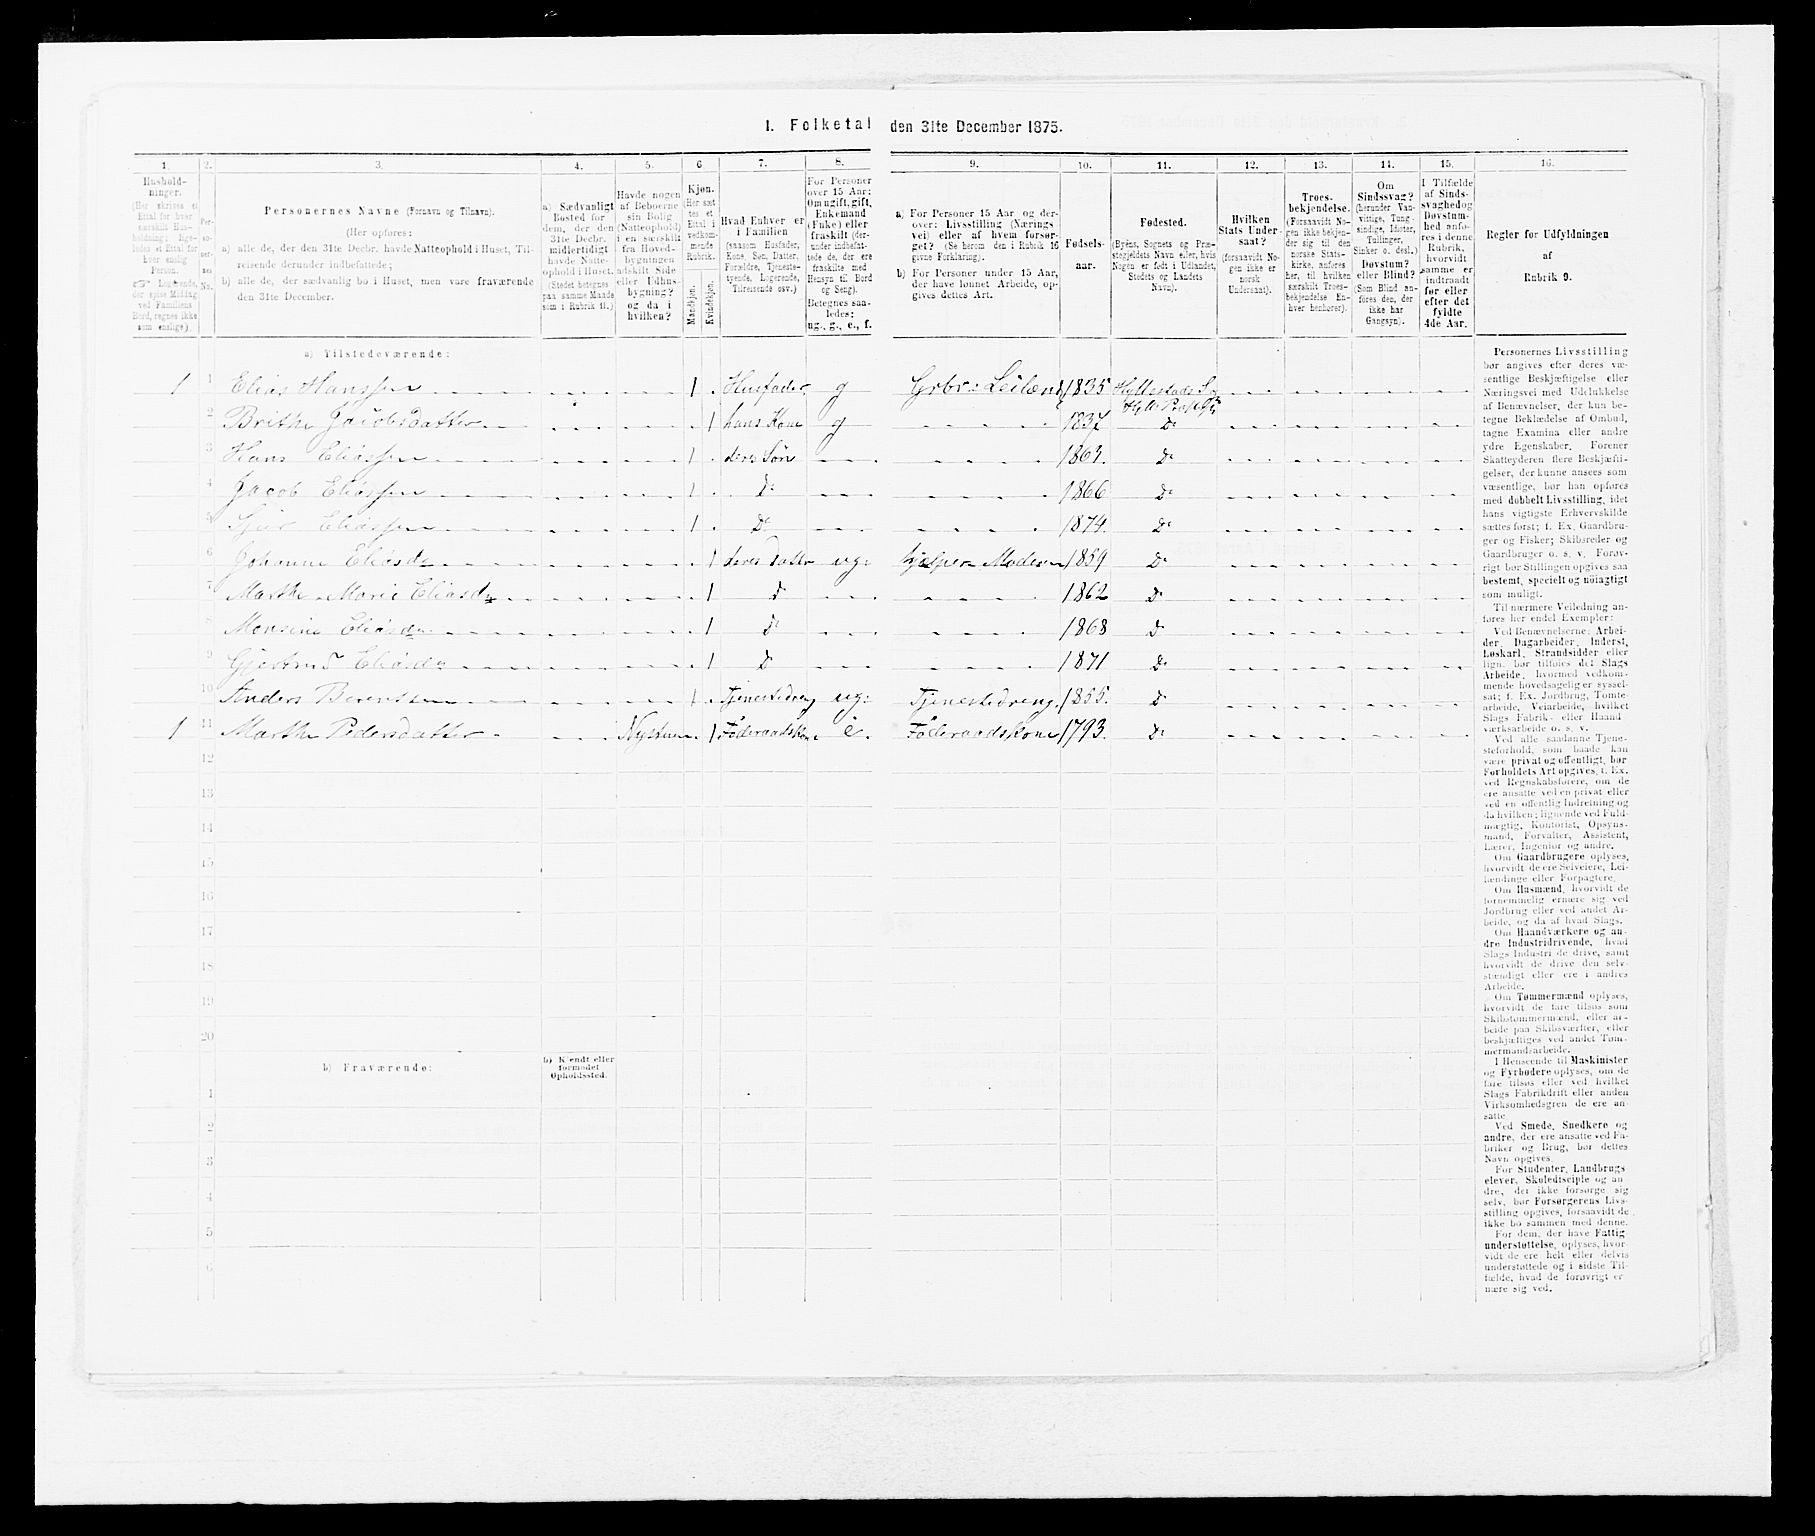 I. Folketal den 31te December 1875.
1. 2. 3. 4. 5. 6. 7. 8. 9. 10. 11. 12. 13. 14. 15. 16.
Personernes Navne (Fornavn og Tilnavn).
(Her opføres:
a) alle de, der den 31te Decbr. havde Natteophold i Huset, Tilreisende derunder indbefattede;
b) alle de, der sædvanlig bo i Huset, men vare fraværende den 31te December.
a) Sædvanligt Bosted for dem, der den 31te Decbr. midlertidigt havde Natteophold i Huset. (Stedet betegnes paa samme Maade som i Rubrik 11.)
Havde nogen af Beboerne sin Bolig (Natteophold) i en særskilt fra Hovedbygningen adskilt Side eller Udhusbygning? og da i hvilken?
Kjøn. (Her sættes et Ettal i vedkommende Rubrik.
Mandkjøn. Kvindekjøn.
Hvad Enhver er i Familien
(saasom Husfader, Kone, Søn, Datter, Forældre, Tjenestetyende, Logerende, Tilreisende osv.)
For Personer over 15 Aar: Om ugift, gift, Enkemand (Enke) eller fraskilt (derunder indbefattede de, der ere fraskilte med Hensyn til Bord og Seng). Betegnes saaledes: ug., g., e., f.
a) For Personer 15 Aar og derover: Livsstilling (Næringsvei) eller af hvem forsørget? (Se herom den i Rubrik 16 givne Forklaring).
b) For Personer under 15 Aar, der have lønnet Arbeide, opgives dettes Art.
Fødselsaar.
Fødested.
(Byens, Sognets og Præstegjeldets Navn eller, hvis Nogen er født i Udlandet, Stedets og Landets Navn).
Hvilken Stats Undersaat?
(forsaavidt Nogen ikke er norsk Undersaat).
Troesbekjendelse.
(Forsaavidt Nogen ikke bekjender sig til den norske Statskirke, anføres her, til hvilken særskilt Troesbekjendelse Enhver henhører).
Om Sindssvag? (herunder Vanvittige, Tungsindige, Idioter, Tullinger, Sinker o. desl.) Døvstum? eller Blind? (Som Blind anføres den, der ikke har Gangsyn).
I Tilfælde af Sindssvaghed og Døvstumhed anføres i denne Rubrik, hvorvidt samme er indtraadt før eller efter det fyldte 4de Aar.
Regler for Udfyldningen
af
Rubrik 9.
a) Tilstedeværende:
1 1 Elias Hanssen 1 Husfader g Grbr: Leilænd 1835 Hyllestads S
2 Brithe Jacobsdatter 1 hans Kone g 1837 Do
3 Hans Eliassen 1 deres Søn 1863. Do
4 Jacob Eliassen 1 Do 1866 Do
5 Sjur Eliassen 1 Do 1874. Do
6 Johanne Eliasdr 1 deres Datter ug: hjælper Moderen 1859 Do
7 Marthe Marie Eliasdr 1 Do 1862 Do
8 Monsine Eliasdr 1 Do 1868 Do
9 Gjertrud Eliasdr 1 Do 1871 Do
10 Anders Berentsen 1 Tjenestedreng ug: Tjenestedreng. 1855. Do
1 11 Marthe Pedersdatter Nystuen 1 Föderaadskone e. Föderaadskone 1793. Do
12
13
14
15
16
17
18
19
20
b) Fraværende:
b) Kjendt eller formodet Opholdssted.
1
2
3
4
5
6
Personernes Livsstilling bør angives efter deres væsentlige Beskjæftigelse eller Næringsvei med Udelukkelse af Benævnelser, der kun betegne Beklædelse af Ombud, tagne Examina eller andre ydre Egenskaber. Forener Skatteyderen flere Beskjæftigelser, der kunne ansees som væsentlige, bør han opføres med dobbelt Livsstilling, idet hans vigtigste Erhvervskilde sættes først; f. Ex. Gaardbruger og Fisker; Skibsreder og Gaardbruger o. s. v. Forøvrigt bør Stillingen opgives saa bestemt, specielt og nöiagtigt som muligt.
Til nærmere Veiledning anføres her endel Exempler:
Ved Benævnelserne: Arbeider, Dagarbeider, Inderst, Løskarl, Strandsidder eller lign. bør tilføies det Slags Arbeide, hvormed vedkommende hovedsagelig er sysselsat; f. Ex. Jordbrug, Tomtearbeide, Veiarbeide, hvilket Slags Fabrik- eller Haandværksarbeide o. s. v.
Ved alle saadanne Tjenesteforhold, som baade kan være privat og offentligt, bør Forholdets Art opgives, f. Ex. ved Regnskabsførere, om de ere ansatte ved en privat eller ved en offentlig Indretning og da hvilken; lignende ved Fuldmægtig, Kontorist, Opsynsmand, Forvalter, Assistent, Lærer, Ingeniør og andre.
Om Gaardbrugere oplyses, hvorvidt de ere Selveiere, Leilændinge eller Forpagtere.
Om Husmænd, hvorvidt de fornemmelig ernære sig ved Jordbrug eller ved andet Arbeide, og da af hvad Slags.
Om Haandværkere og andre Industridrivende, hvad Slags Industri de drive, samt hvorvidt de drive den selvstændigt eller ere i andres Arbeide.
Om Tømmermænd oplyses, hvorvidt de fare tilsøs som Skibstømmermænd, eller arbeide paa Skibsværfter, eller beskjæftiges ved andet Tømmermandsarbeide.
I Henseende til Maskinister og Fyrbødere oplyses, om de fare tilsøs eller ved hvilket Slags Fabrikdrift eller anden Virksomhedsgren de ere ansatte.
Ved Smede, Snedkere og andre, der ere ansatte ved Fabriker og Brug, bør dettes Navn opgives.
For Studenter, Landbrugselever, Skoledisciple og andre, der ikke forsørge sig selv, bør Forsørgerens Livsstilling opgives, forsaavidt de ikke bo sammen med denne.
For dem, der have Fattigunderstøttelse, oplyses, hvorvidt de ere helt eller delvis understøttede og i sidste Tilfælde, hvad de forøvrigt ernære sig ved.